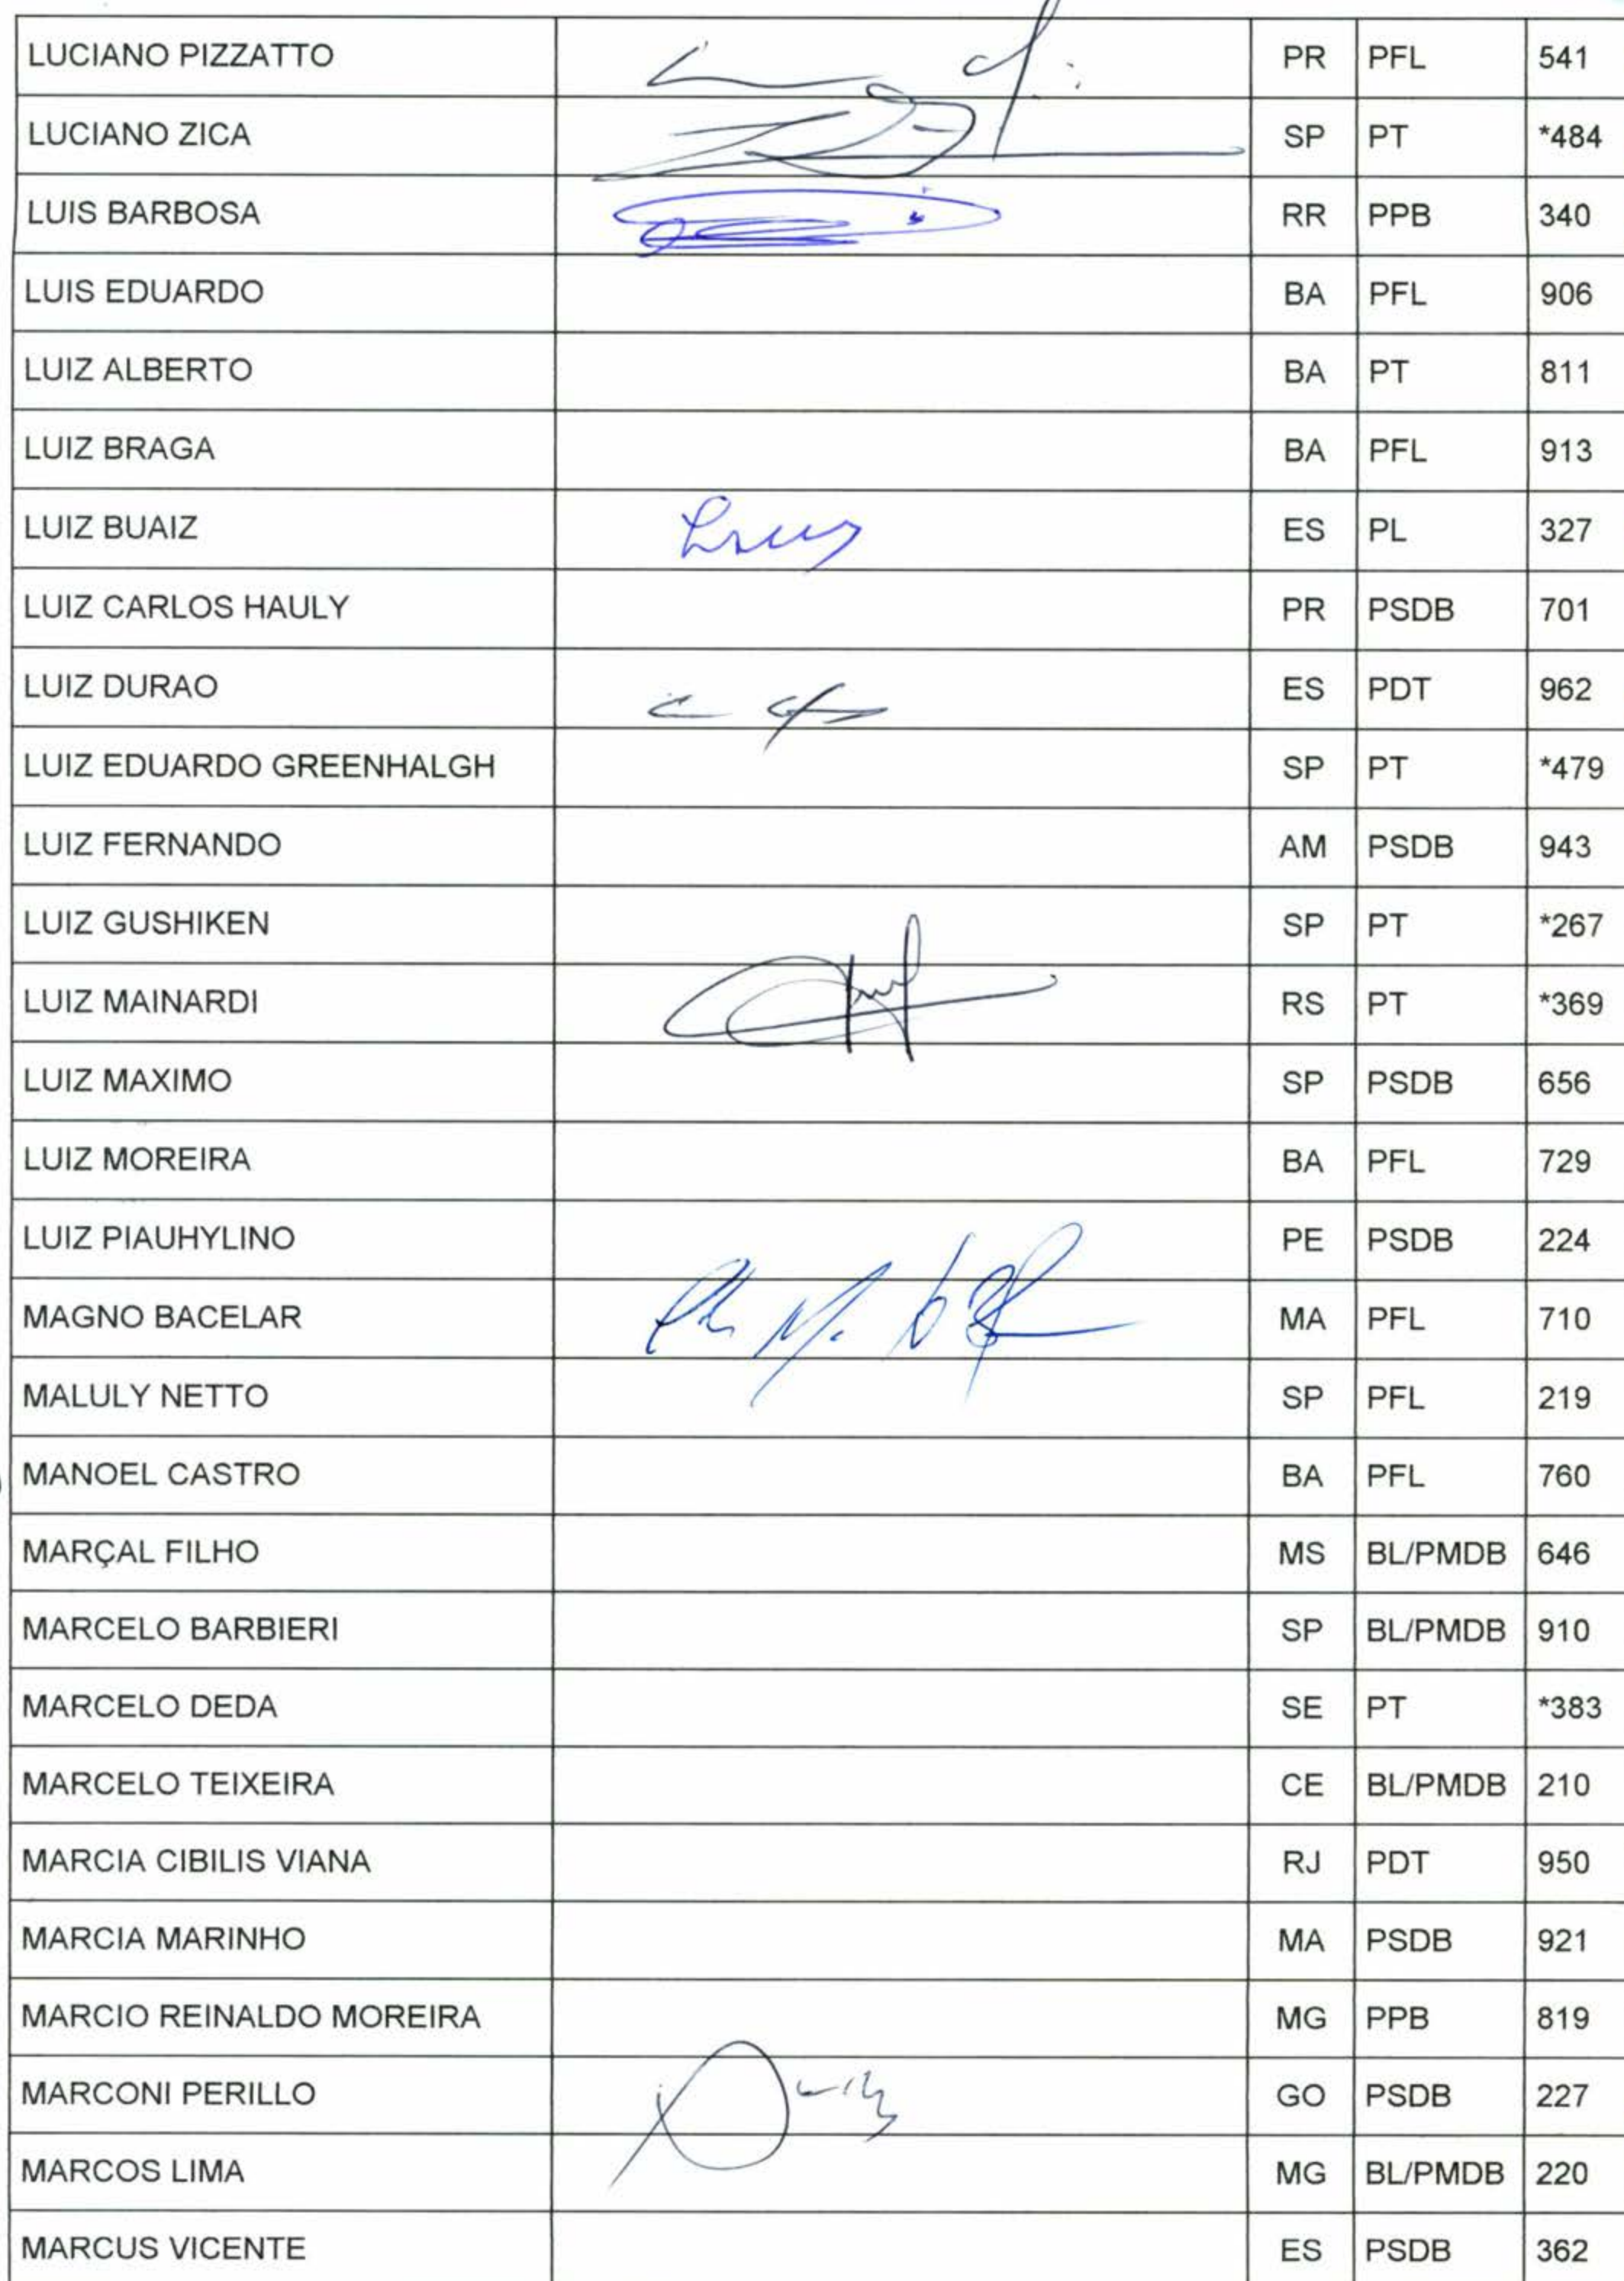 LUCIANO PIZZATTO PR PFL 541
LUCIANO ZICA SP PT *484
LUIS BARBOSA RR PPB 340
LUIS EDUARDO BA PFL 906
LUIZ ALBERTO BA PT 811
LUIZ BRAGA BA PFL 913
LUIZ BUAIZ ES PL 327
LUIZ CARLOS HAULY PR PSDB 701
LUIZ DURAO ES PDT 962
LUIZ EDUARDO GREENHALGH SP PT *479
LUIZ FERNANDO AM PSDB 943
LUIZ GUSHIKEN SP PT *267
LUIZ MAINARDI RS PT *369
LUIZ MAXIMO SP PSDB 656
LUIZ MOREIRA BA PFL 729
LUIZ PIAUHYLINO PE PSDB 224
MAGNO BACELAR MA PFL 710
MALULY NETTO SP PFL 219
MANOEL CASTRO BA PFL 760
MARÇAL FILHO MS BL/PMDB 646
MARCELO BARBIERI SP BL/PMDB 910
MARCELO DEDA SE PT *383
MARCELO TEIXEIRA CE BL/PMDB 210
MARCIA CIBILIS VIANA RJ PDT 950
MARCIA MARINHO MA PSDB 921
MARCIO REINALDO MOREIRA MG PPB 819
MARCONI PERILLO GO PSDB 227
MARCOS LIMA MG BL/PMDB 220
MARCUS VICENTE ES PSDB 362